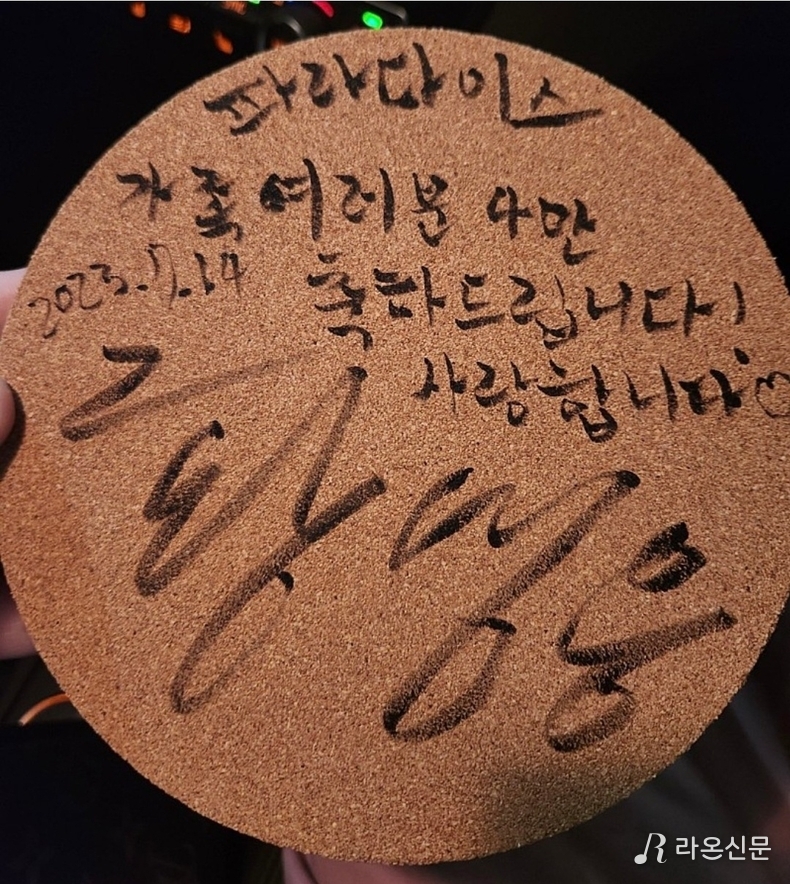 파라다이스
가족 여러분 4만
2023.7.14 축하드립니다!
사랑합니다♡
황영웅
라온신문